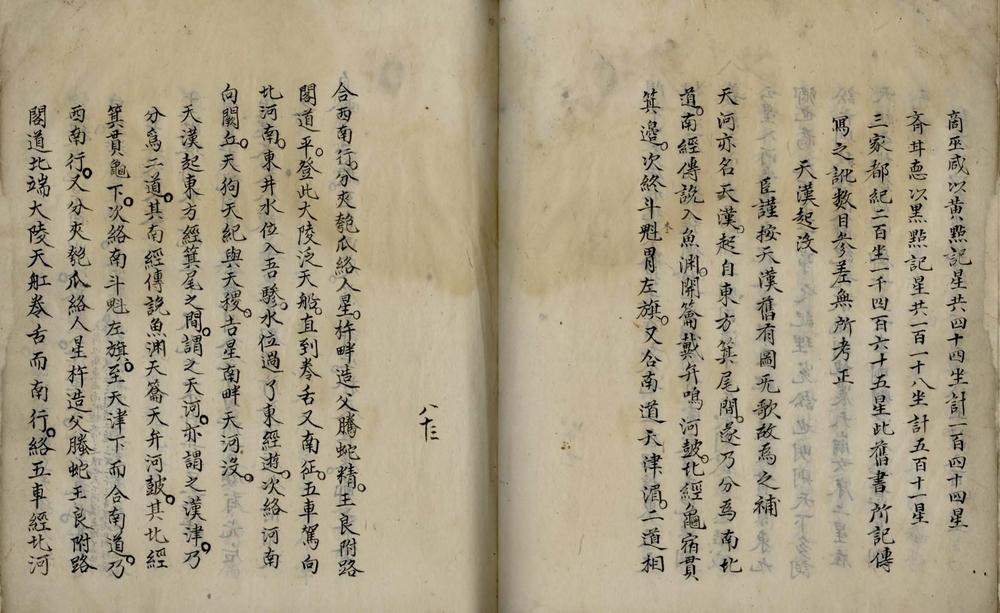 商巫咸以黃點記星共四十四坐計一百四十四星
齊甘悳以黑點記星共一百一十八坐計五百十一星
三家都紀二百坐一千四百六十五星此舊書所記傳
寫之訛數目參差無所考正
天漢起沒
臣謹按天漢舊有圖无歌故爲之補
天河亦名天漢起自東方箕尾間遂乃分爲南北
道南經傅說入魚淵開籥戴弁鳴河皷北經龜宿貫
箕邉次終斗魁冐左旗又合南道天津湄二道相
合西南行分夾匏瓜絡人星杵畔造父騰蛇精王良附路
閣道平登此大陵泛天船直到卷舌又南征五車駕向
北河南東井水位入吾驂水位過了東經遊次絡河南
向闕丘天狗天紀與天稷七星南畔天河沒
天漢起東方經箕尾之間謂之天河亦謂之漢津乃
分爲二道其南經傅說魚淵天籥天弁河皷其北經
箕貫龜下次絡南斗魁左旗至天津下而合南道乃
西南行又分夾匏瓜絡人星杵造父螣蛇王良附路
閣道北端大陵天舡卷舌而南行絡五車經北河
八十三